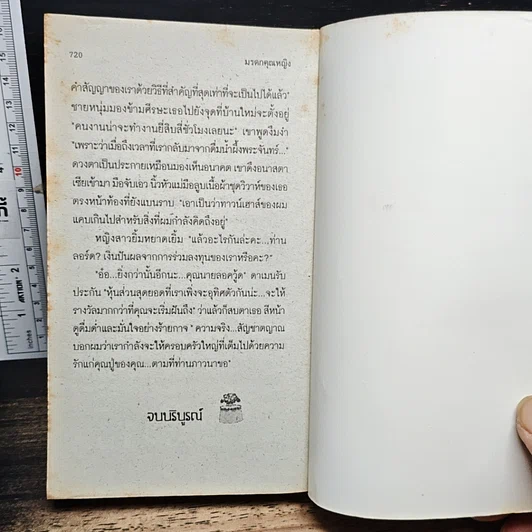 720
มรดกคุณหญิง
คำสัญญาของเราด้วยวิธีที่สำคัญที่สุดเท่าที่จะเป็นไปได้แล้ว"
ชายหนุ่มมองข้ามศีรษะเธอไปยังจุดที่บ้านใหม่จะตั้งอยู่
"คนงานน่าจะทำงานยี่สิบสี่ชั่วโมงเลยนะ" เขาพูดงึมงำ
"เพราะว่าเมื่อถึงเวลาที่เรากลับมาจากดื่มน้ำผึ้งพระจันทร์..."
ดวงตาเป็นประกายเหมือนมองเห็นอนาคต เขาดึงอนาสตา
เซียเข้ามา มือจับเอว นิ้วหัวแม่มือลูบเนื้อผ้าชุดวิวาห์ของเธอ
ตรงหน้าท้องที่ยังแบนราบ "เอาเป็นว่าทาวน์เฮาส์ของผม
แคบเกินไปสำหรับสิ่งที่ผมกำลังคิดถึงอยู่"
หญิงสาวยิ้มหยาดเยิ้ม "แล้วอะไรกันล่ะคะ...ท่าน
ลอร์ด? เงินปันผลจากการร่วมลงทุนของเราหรือคะ?"
"อ๋อ...ยิ่งกว่านั้นอีกนะ...คุณนายลอควู้ด" ดาเมนรับ
ประกัน "หุ้นส่วนสุดยอดที่เราเพิ่งจะอุทิศตัวกันน่ะ...จะให้
รางวัลมากกว่าที่คุณจะเริ่มฝันถึง" ว่าแล้วก็สบตาเธอ สีหน้า
ดูดื่มด่ำและมั่นใจอย่างร้ายกาจ "ความจริง...สัญชาตญาณ
บอกผมว่าเรากำลังจะให้ครอบครัวใหญ่ที่เต็มไปด้วยความ
รักแก่คุณปู่ของคุณ...ตามที่ท่านภาวนาขอ"
จบบริบูรณ์